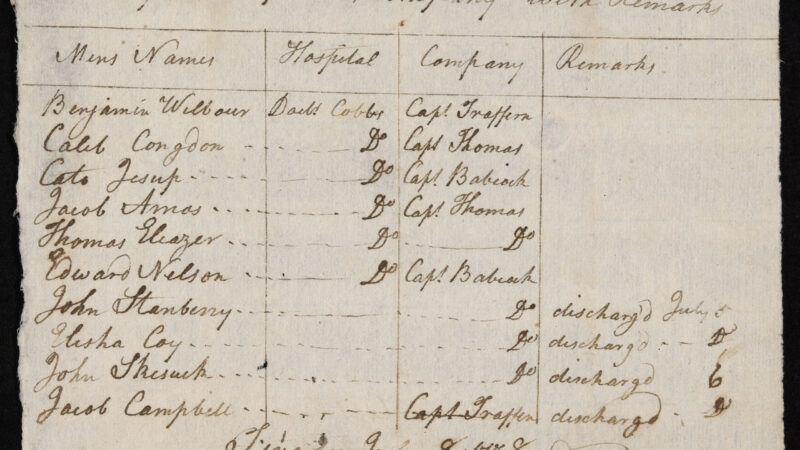 with Remarks
Mens Names Hospital Company Remarks
Benjamin Wilbour Doctr Cobbs Capt Traffern
Caleb Congdon Do Capt Thomas
Cato Jesup Do Capt Babcock
Jacob Amos Do Capt Thomas
Thomas Eleazer Do Do
Edward Nelson Do Capt Babcock
John Stanberry Do dischargd July 5
Elisha Coy Do dischargd Do
John Skesuck Do dischargd 6
Jacob Campbell Capt Traffern dischargd Do